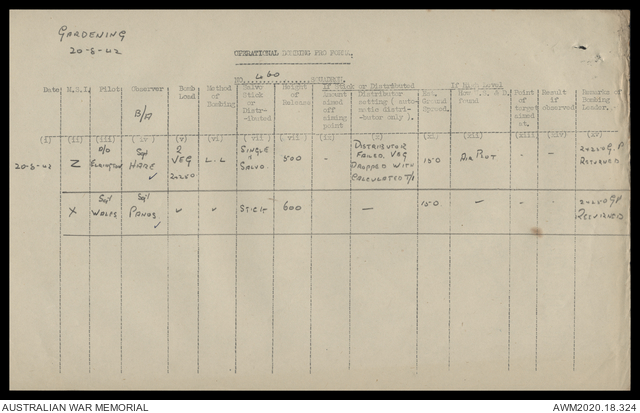 GARDENING
20-8-42
OPERATIONAL BOMBING PRO FORMA.
NO. 460 SQUADRON.
Date M.S.I. Pilot Observer Bomb Load Method of Bombing Salvo Stick or Distr-ibuted Height of Release If Stick or Distributed If High Level Point of target aimed at. Result if observed Remarks or Bombing Leader.
B/A
Amount aimed off aiming point Distributor setting (automatic distributor only). Ground Speed. How found
(i) (ii) (iii) (iv) (v) (vi) (vii) (viii) (ix) (x) (xi) (xii) (xiii) (xiv) (xv)
20-8-42 Z P/O Sgt HARE 2 VEG 2x250 L.L SINGLE SALVO 500 - DISTRIBUTOR FAILED. VEG DROPPED WITH CALCULATED T/I 150 AIR PLOT - - 2x250 G.P RETURNED
X Sgt WOLFS Sgt STICK 600 - 150 - - - 2x250 G.P RETURNED
AUSTRALIAN WAR MEMORIAL
AWM2020.18.324